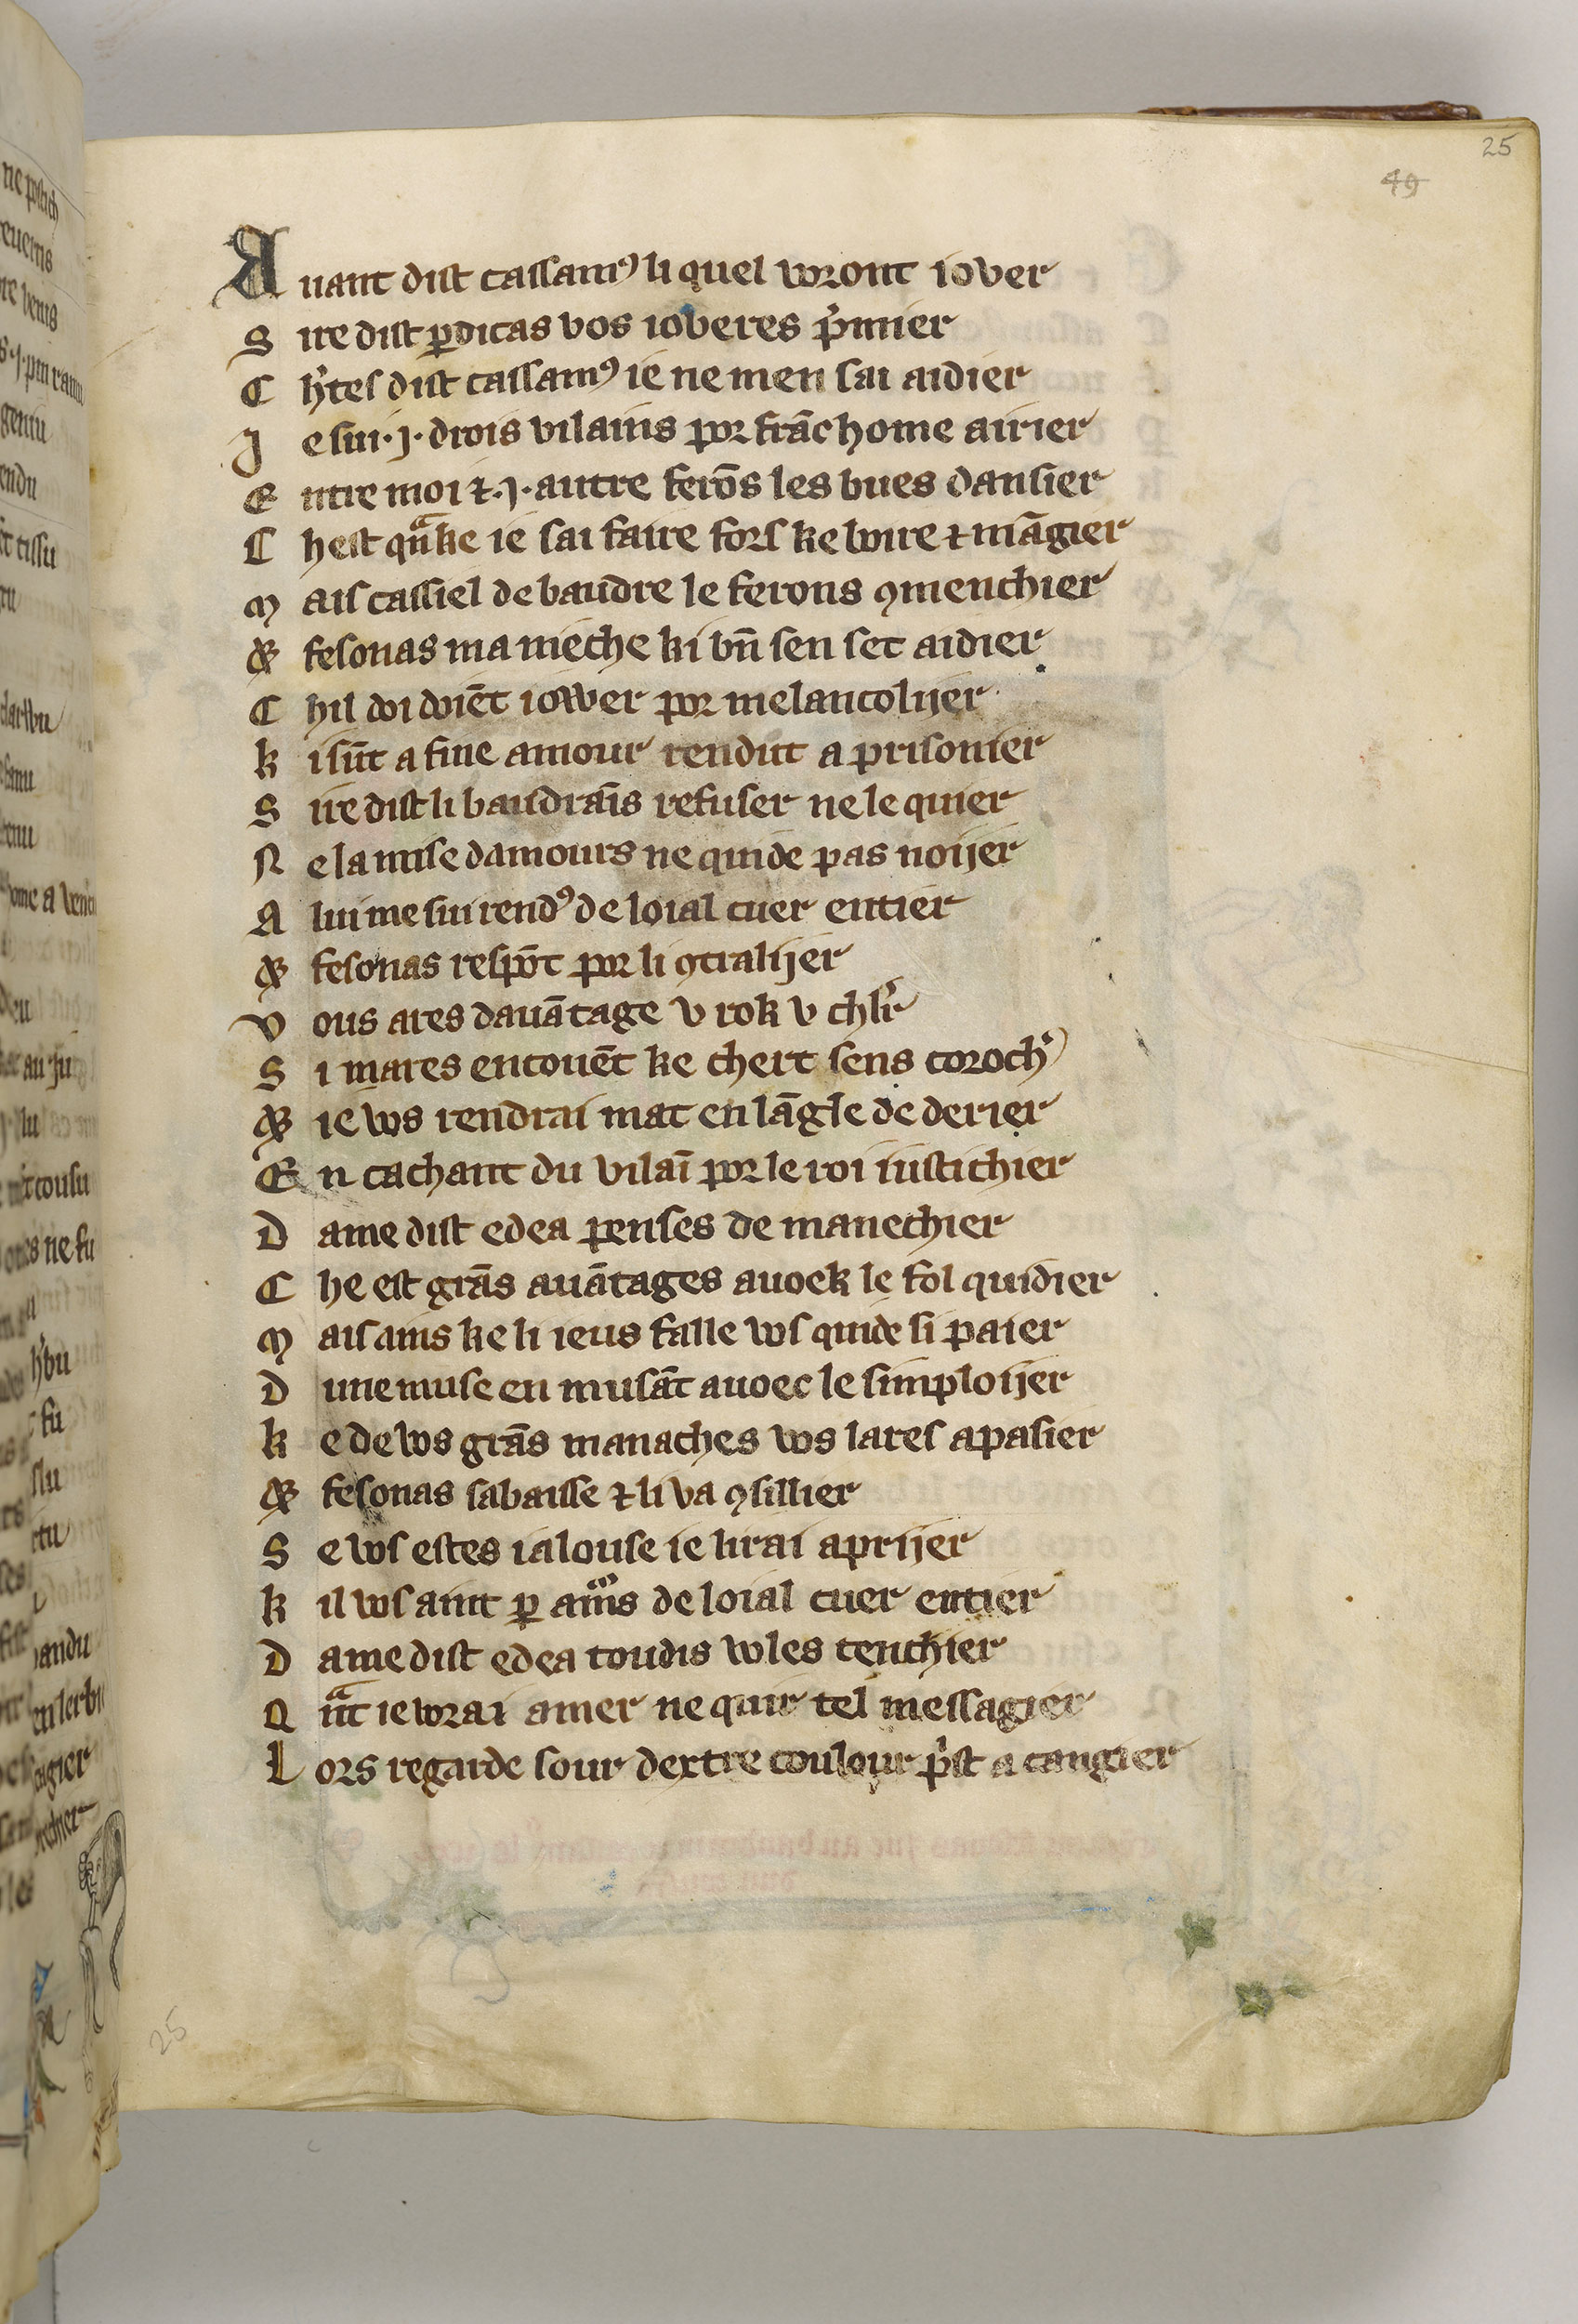 25
49
A uant dist cassamꝰ li quel voront iover
S ire dist ꝑdicas vos ioveres p̾mier
C h̾tes dist cassamꝰ ie ne men sai aidier
J e sui ·j· drois vilains por frāc home airier
E ntre moi ⁊ ·j· autre ferōs les bues dansier
C hest qᷓnke ie sai faire fors ke boire ⁊ māgier
M ais cassiel de baudre le ferons ꝯmenchier
⁊ fesonas ma nieche ki bn̄ sen set aidier
C hil doi doiēt iower por melancolijer
k i sūt a fine amour rendut a prisonier
S ire dist li baudraīs refuser ne le quier
N e la mise damours ne quide pas noijer
A lui me sui rendꝰ de loial cuer entier
⁊ fesonas respōt por li ꝯtralijer
V ous ares dauātage v rok v chlr̄
S i mares encouēt ke chert sens coroch̾
⁊ ie vos rendrai mat en lāgle de derier
E n cachant du vilaī por le roi iustichier
D ame dist edea penses de manechier
C he est grās auātages auoek le fol quidier
M ais ains ke li ieus falle vos quide si paier
D une muse en musāt auoec le simploijer
k e de vos grās manaches vos lares apasier
⁊ fesonas sabaisse ⁊ li va ꝯsillier
S e vos estes ialouse ie lirai aprijer
k il vos aint ꝑ amᷣs de loial cuer entier
D ame dist edea toudis voles tenchier
Q nᷓt ie vorai amer ne quir tel messagier
L ors regarde sour dextre coulour p̾st a cangier
25